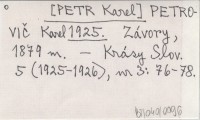 [PETR Karel] PETRO-
VIČ Karel 1925. Závory,
1879 m. — Krásy Slov.
5 (1925-1926), nr 3: 76-78.